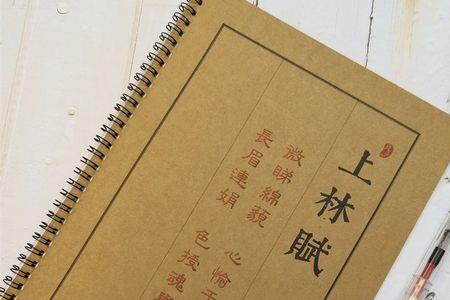 上林賦
微睇綿藐
長眉連娟
心愉于
色授魂